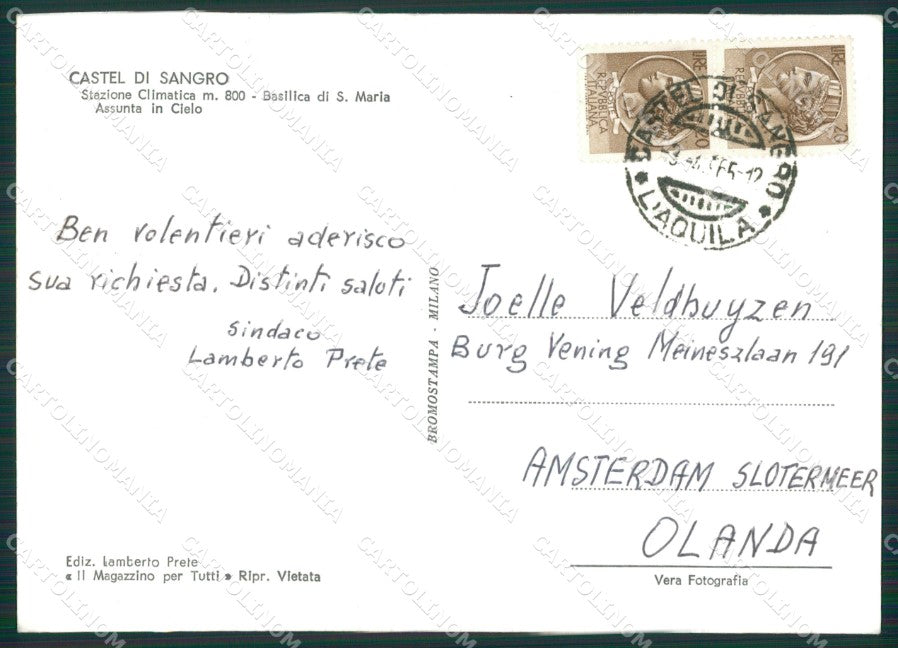 CASTEL DI SANGRO
Stazione Climatica m. 800 - Basilica di S. Maria
Assunta in Cielo
LIRE 20
REPUBBLICA
ITALIANA
LIRE 20
CASTEL DI SANGRO
* L'AQUILA *
Ben volentieri aderisco
sua richiesta. Distinti saluti
Sindaco
Lamberto Prete
BROMOSTAMPA - MILANO
Joelle Veldhuyzen
Burg Vening Meineszlaan 191
AMSTERDAM SLOTERMEER
OLANDA
Ediz. Lamberto Prete
« Il Magazzino per Tutti » Ripr. Vietata
Vera Fotografia
CARTOLINOMANIA